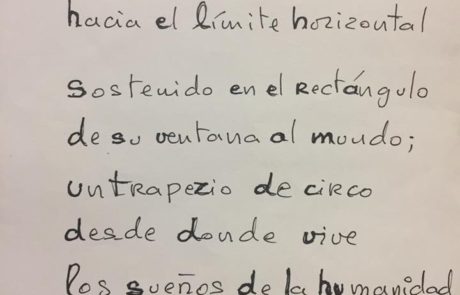 hacia el límite horizontal
sostenido en el rectángulo
de su ventana al mundo;
un trapezio de circo
desde donde vive
los sueños de la humanidad